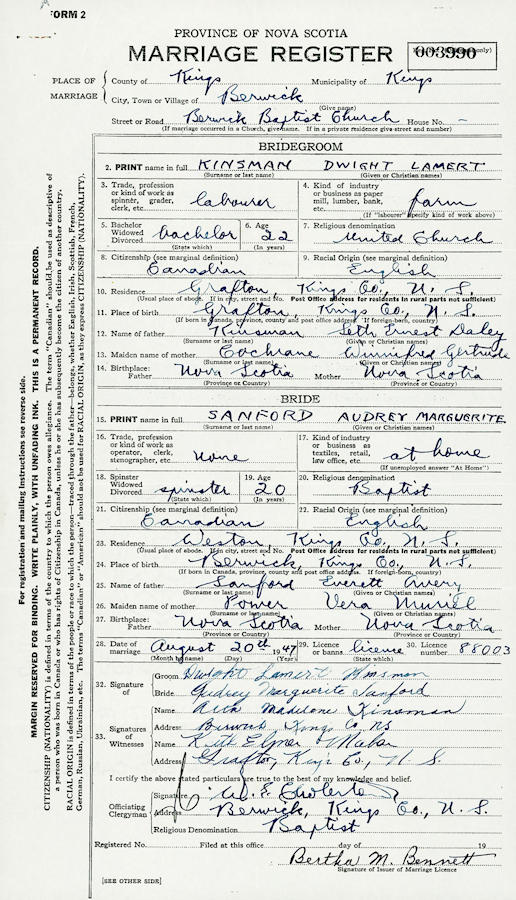 FORM 2
PROVINCE OF NOVA SCOTIA
MARRIAGE REGISTER
003990
PLACE OF MARRIAGE
County of Kings Municipality of Kings
City, Town or Village of Berwick
(Give name)
Street or Road Berwick Baptist Church House No. –
(If marriage occurred in a Church, give name. If in a private residence give street and number)
BRIDEGROOM
2. PRINT name in full KINSMAN DWIGHT LAMERT
(Surname or last name) (Given or Christian names)
3. Trade, profession or kind of work as spinner, grader, clerk, etc. labourer
4. Kind of industry or business as paper mill, lumber, bank, etc. farm
(If "labourer" specify kind of work above)
5. Bachelor Widowed Divorced bachelor (State which)
6. Age 22 (In years)
7. Religious denomination United Church
8. Citizenship (see marginal definition) Canadian
9. Racial Origin (see marginal definition) English
10. Residence Grafton, Kings Co., N. S.
(Usual place of abode. If in city, street and No. Post Office address for residents in rural parts not sufficient)
11. Place of birth Grafton, Kings Co., N. S.
(If born in Canada, province, county and post office address. If foreign-born, country)
12. Name of father Kinsman Seth Ernest Daley
(Surname or last name) (Given or Christian names)
13. Maiden name of mother Cochrane Winnifred Gertrude
(Surname or last name) (Given or Christian names)
14. Birthplace: Father Nova Scotia Mother Nova Scotia
(Province or Country) (Province or Country)
BRIDE
15. PRINT name in full SANFORD AUDREY MARGUERITE
(Surname or last name) (Given or Christian names)
16. Trade, profession or kind of work as operator, clerk, stenographer, etc. None
17. Kind of industry or business as textiles, retail, law office, etc. at home
(If unemployed answer "At Home")
18. Spinster Widowed Divorced spinster (State which)
19. Age 20 (In years)
20. Religious denomination Baptist
21. Citizenship (see marginal definition) Canadian
22. Racial Origin (see marginal definition) English
23. Residence Weston, Kings Co., N. S.
(Usual place of abode. If in city, street and No. Post Office address for residents in rural parts not sufficient)
24. Place of birth Berwick, Kings Co., N. S.
(If born in Canada, province, county and post office address. If foreign-born, country)
25. Name of father Sanford Everett Avery
(Surname or last name) (Given or Christian names)
26. Maiden name of mother Power Vera Muriel
(Surname or last name) (Given or Christian names)
27. Birthplace: Father Nova Scotia Mother Nova Scotia
(Province or Country) (Province or Country)
28. Date of marriage August 20th 1947
(Month by name) (Day) (Year)
29. Licence or banns licence
30. Licence number 88003
32. Signature of
Groom Dwight Lamert Kinsman
Bride Audrey Marguerite Sanford
33. Signatures of Witnesses
Name Madelone Kinsman
Address Berwick Kings Co NS
Name Keith Elmer
Address Grafton, Kings Co., N. S.
I certify the above stated particulars are true to the best of my knowledge and belief.
Officiating Clergyman
Signature W. E.
Address Berwick, Kings Co., N. S.
Religious Denomination Baptist
Registered No. Filed at this office day of 19
Bertha M. Bennett
Signature of Issuer of Marriage Licence
[SEE OTHER SIDE]
For registration and mailing instructions see reverse side.
MARGIN RESERVED FOR BINDING. WRITE PLAINLY, WITH UNFADING INK. THIS IS A PERMANENT RECORD.
CITIZENSHIP (NATIONALITY) is defined in terms of the country to which the person owes allegiance. The term "Canadian" should be used as descriptive of
a person who was born in Canada or who has rights of Citizenship in Canada, unless he or she has subsequently become the citizen of another country.
RACIAL ORIGIN is defined in terms of the people or race to which the person—traced through the father—belongs, whether English, Irish, Scottish, French,
German, Russian, Ukrainian, etc. The terms "Canadian" or "American" should not be used for RACIAL ORIGIN, as they express CITIZENSHIP (NATIONALITY).